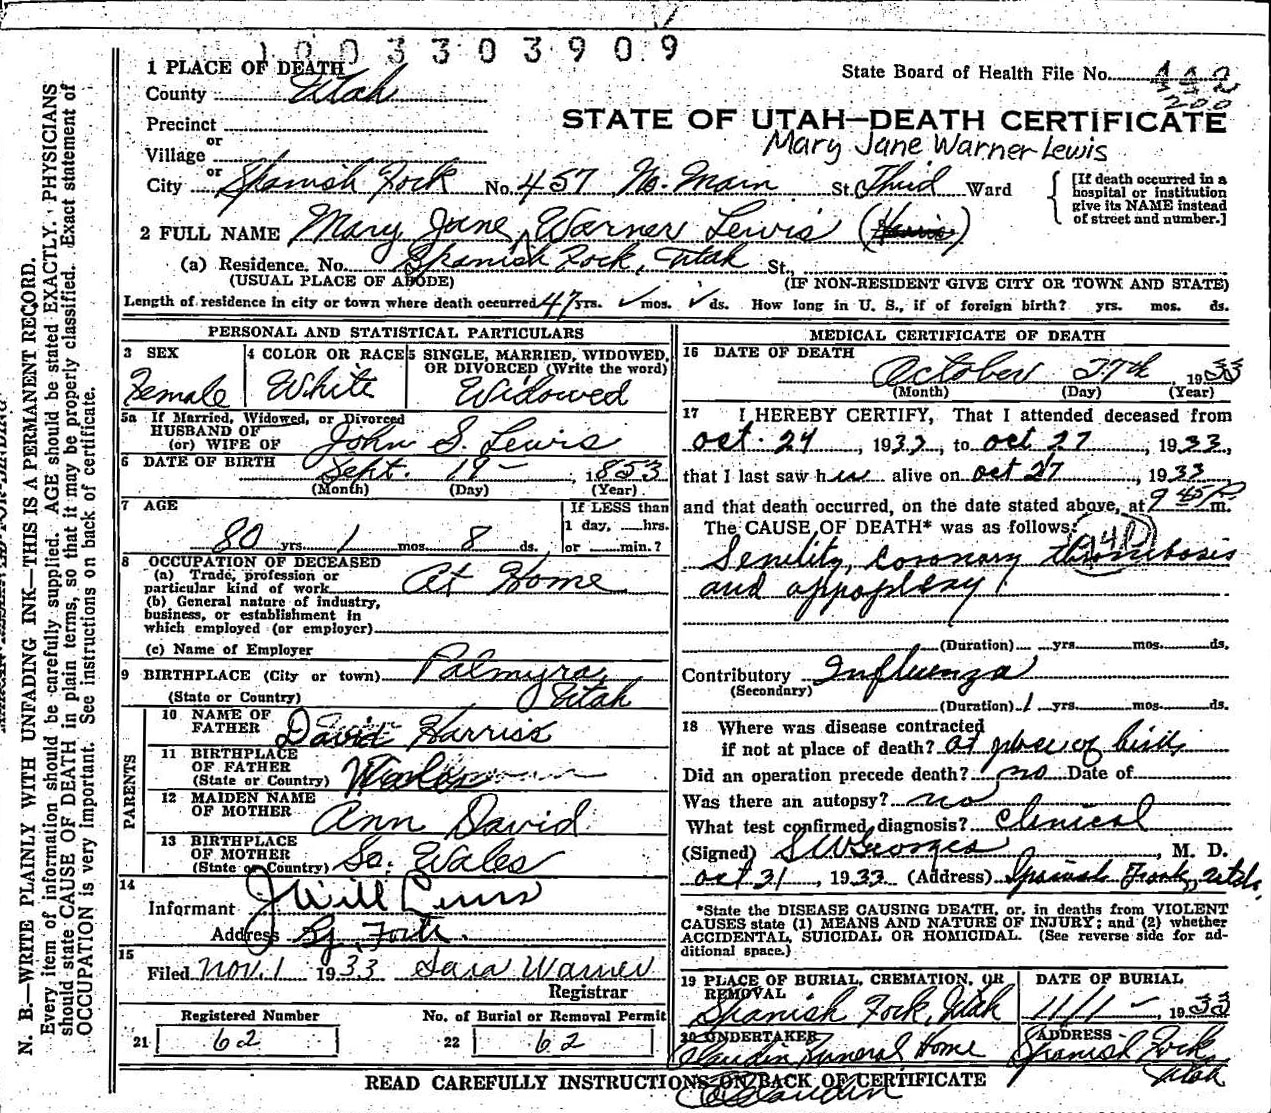 1003303909
1 PLACE OF DEATH
State Board of Health File No.
County Utah
200
Precinct
STATE OF UTAH—DEATH CERTIFICATE
or
Mary Jane Warner Lewis
Village
or
City Spanish Fork No. 457 No. Main St. Third Ward
{ [If death occurred in a
hospital or institution
give its NAME instead
of street and number.]
2 FULL NAME Mary Jane Warner Lewis (Harris)
(a) Residence. No. Spanish Fork, Utah St.,
(USUAL PLACE OF ABODE) (IF NON-RESIDENT GIVE CITY OR TOWN AND STATE)
Length of residence in city or town where death occurred 47 yrs. ✓ mos. ✓ ds. How long in U. S., if of foreign birth? yrs. mos. ds.
PERSONAL AND STATISTICAL PARTICULARS
3 SEX
Female
4 COLOR OR RACE
White
5 SINGLE, MARRIED, WIDOWED,
OR DIVORCED (Write the word)
Widowed
5a If Married, Widowed, or Divorced
HUSBAND OF
(or) WIFE OF John S. Lewis
6 DATE OF BIRTH Sept. 19 - , 1853
(Month) (Day) (Year)
7 AGE
80 yrs. 1 mos. 8 ds.
If LESS than
1 day, hrs.
or min.?
8 OCCUPATION OF DECEASED
(a) Trade, profession or
particular kind of work At Home
(b) General nature of industry,
business, or establishment in
which employed (or employer)
(c) Name of Employer
9 BIRTHPLACE (City or town) Palmyra,
(State or Country) Utah
PARENTS
10 NAME OF
FATHER David Harriss
11 BIRTHPLACE
OF FATHER
(State or Country) Wales
12 MAIDEN NAME
OF MOTHER Ann David
13 BIRTHPLACE
OF MOTHER
(State or Country) So. Wales
14
Informant J Will Lewis
Address Sp. Fork.
15
Filed Nov. 1 1933 Sara Warner
Registrar
Registered Number No. of Burial or Removal Permit
21 62 22 62
MEDICAL CERTIFICATE OF DEATH
16 DATE OF DEATH
October 27th, 1933
(Month) (Day) (Year)
17 I HEREBY CERTIFY, That I attended deceased from
Oct. 24, 1933, to Oct 27, 1933,
that I last saw her alive on Oct 27, 1933
and that death occurred, on the date stated above, at 9 45 P. m.
The CAUSE OF DEATH* was as follows:
Senility, coronary thrombosis
and appoplexy
(Duration) yrs. mos. ds.
Contributory Influenza
(Secondary)
(Duration) 1 yrs. mos. ds.
18 Where was disease contracted
if not at place of death? at place of birth
Did an operation precede death? no Date of
Was there an autopsy? no
What test confirmed diagnosis? Clinical
(Signed) S W Georges, M. D.
Oct 31, 1933 (Address) Spanish Fork, Utah.
*State the DISEASE CAUSING DEATH, or, in deaths from VIOLENT
CAUSES state (1) MEANS AND NATURE OF INJURY; and (2) whether
ACCIDENTAL, SUICIDAL OR HOMICIDAL. (See reverse side for ad-
ditional space.)
19 PLACE OF BURIAL, CREMATION, OR
REMOVAL
Spanish Fork, Utah
DATE OF BURIAL
11/1 - , 1933
20 UNDERTAKER
Claudin Funeral Home
ADDRESS
Spanish Fork,
Utah
READ CAREFULLY INSTRUCTIONS ON BACK OF CERTIFICATE
Claudin
N. B.—WRITE PLAINLY WITH UNFADING INK—THIS IS A PERMANENT RECORD.
Every item of information should be carefully supplied. AGE should be stated EXACTLY. PHYSICIANS
should state CAUSE OF DEATH in plain terms, so that it may be properly classified. Exact statement of
OCCUPATION is very important. See instructions on back of certificate.